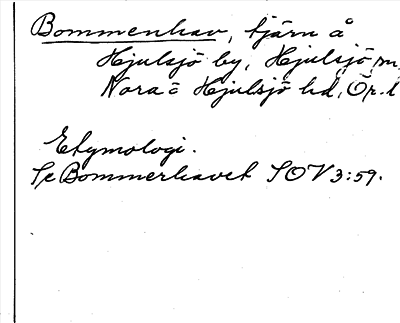 Bommenhav, tjärn å
Hjulsjö by, Hjulsjö sn,
Nora o Hjulsjö hd, Ör. l
Etymologi.
Se Bommerhavet SOV 3:59.